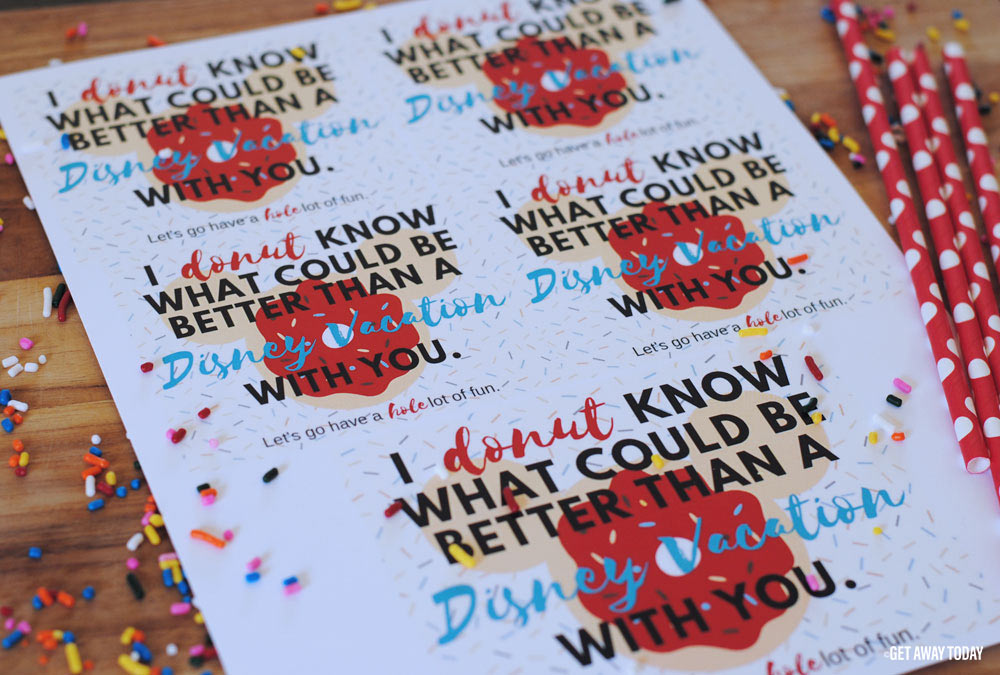 I donut KNOW
WHAT COULD BE
BETTER THAN A
Disney Vacation
WITH YOU.
Let's go have a hole lot of fun.
I donut KNOW
WHAT COULD BE
BETTER THAN A
Disney Vacation
WITH YOU.
Let's go have a hole lot of fun.
I donut KNOW
WHAT COULD BE
BETTER THAN A
Disney Vacation
WITH YOU.
Let's go have a hole lot of fun.
I donut KNOW
WHAT COULD BE
BETTER THAN A
Disney Vacation
WITH YOU.
Let's go have a hole lot of fun.
I donut KNOW
WHAT COULD BE
BETTER THAN A
Disney Vacation
WITH YOU.
hole lot of fun.
©GET AWAY TODAY